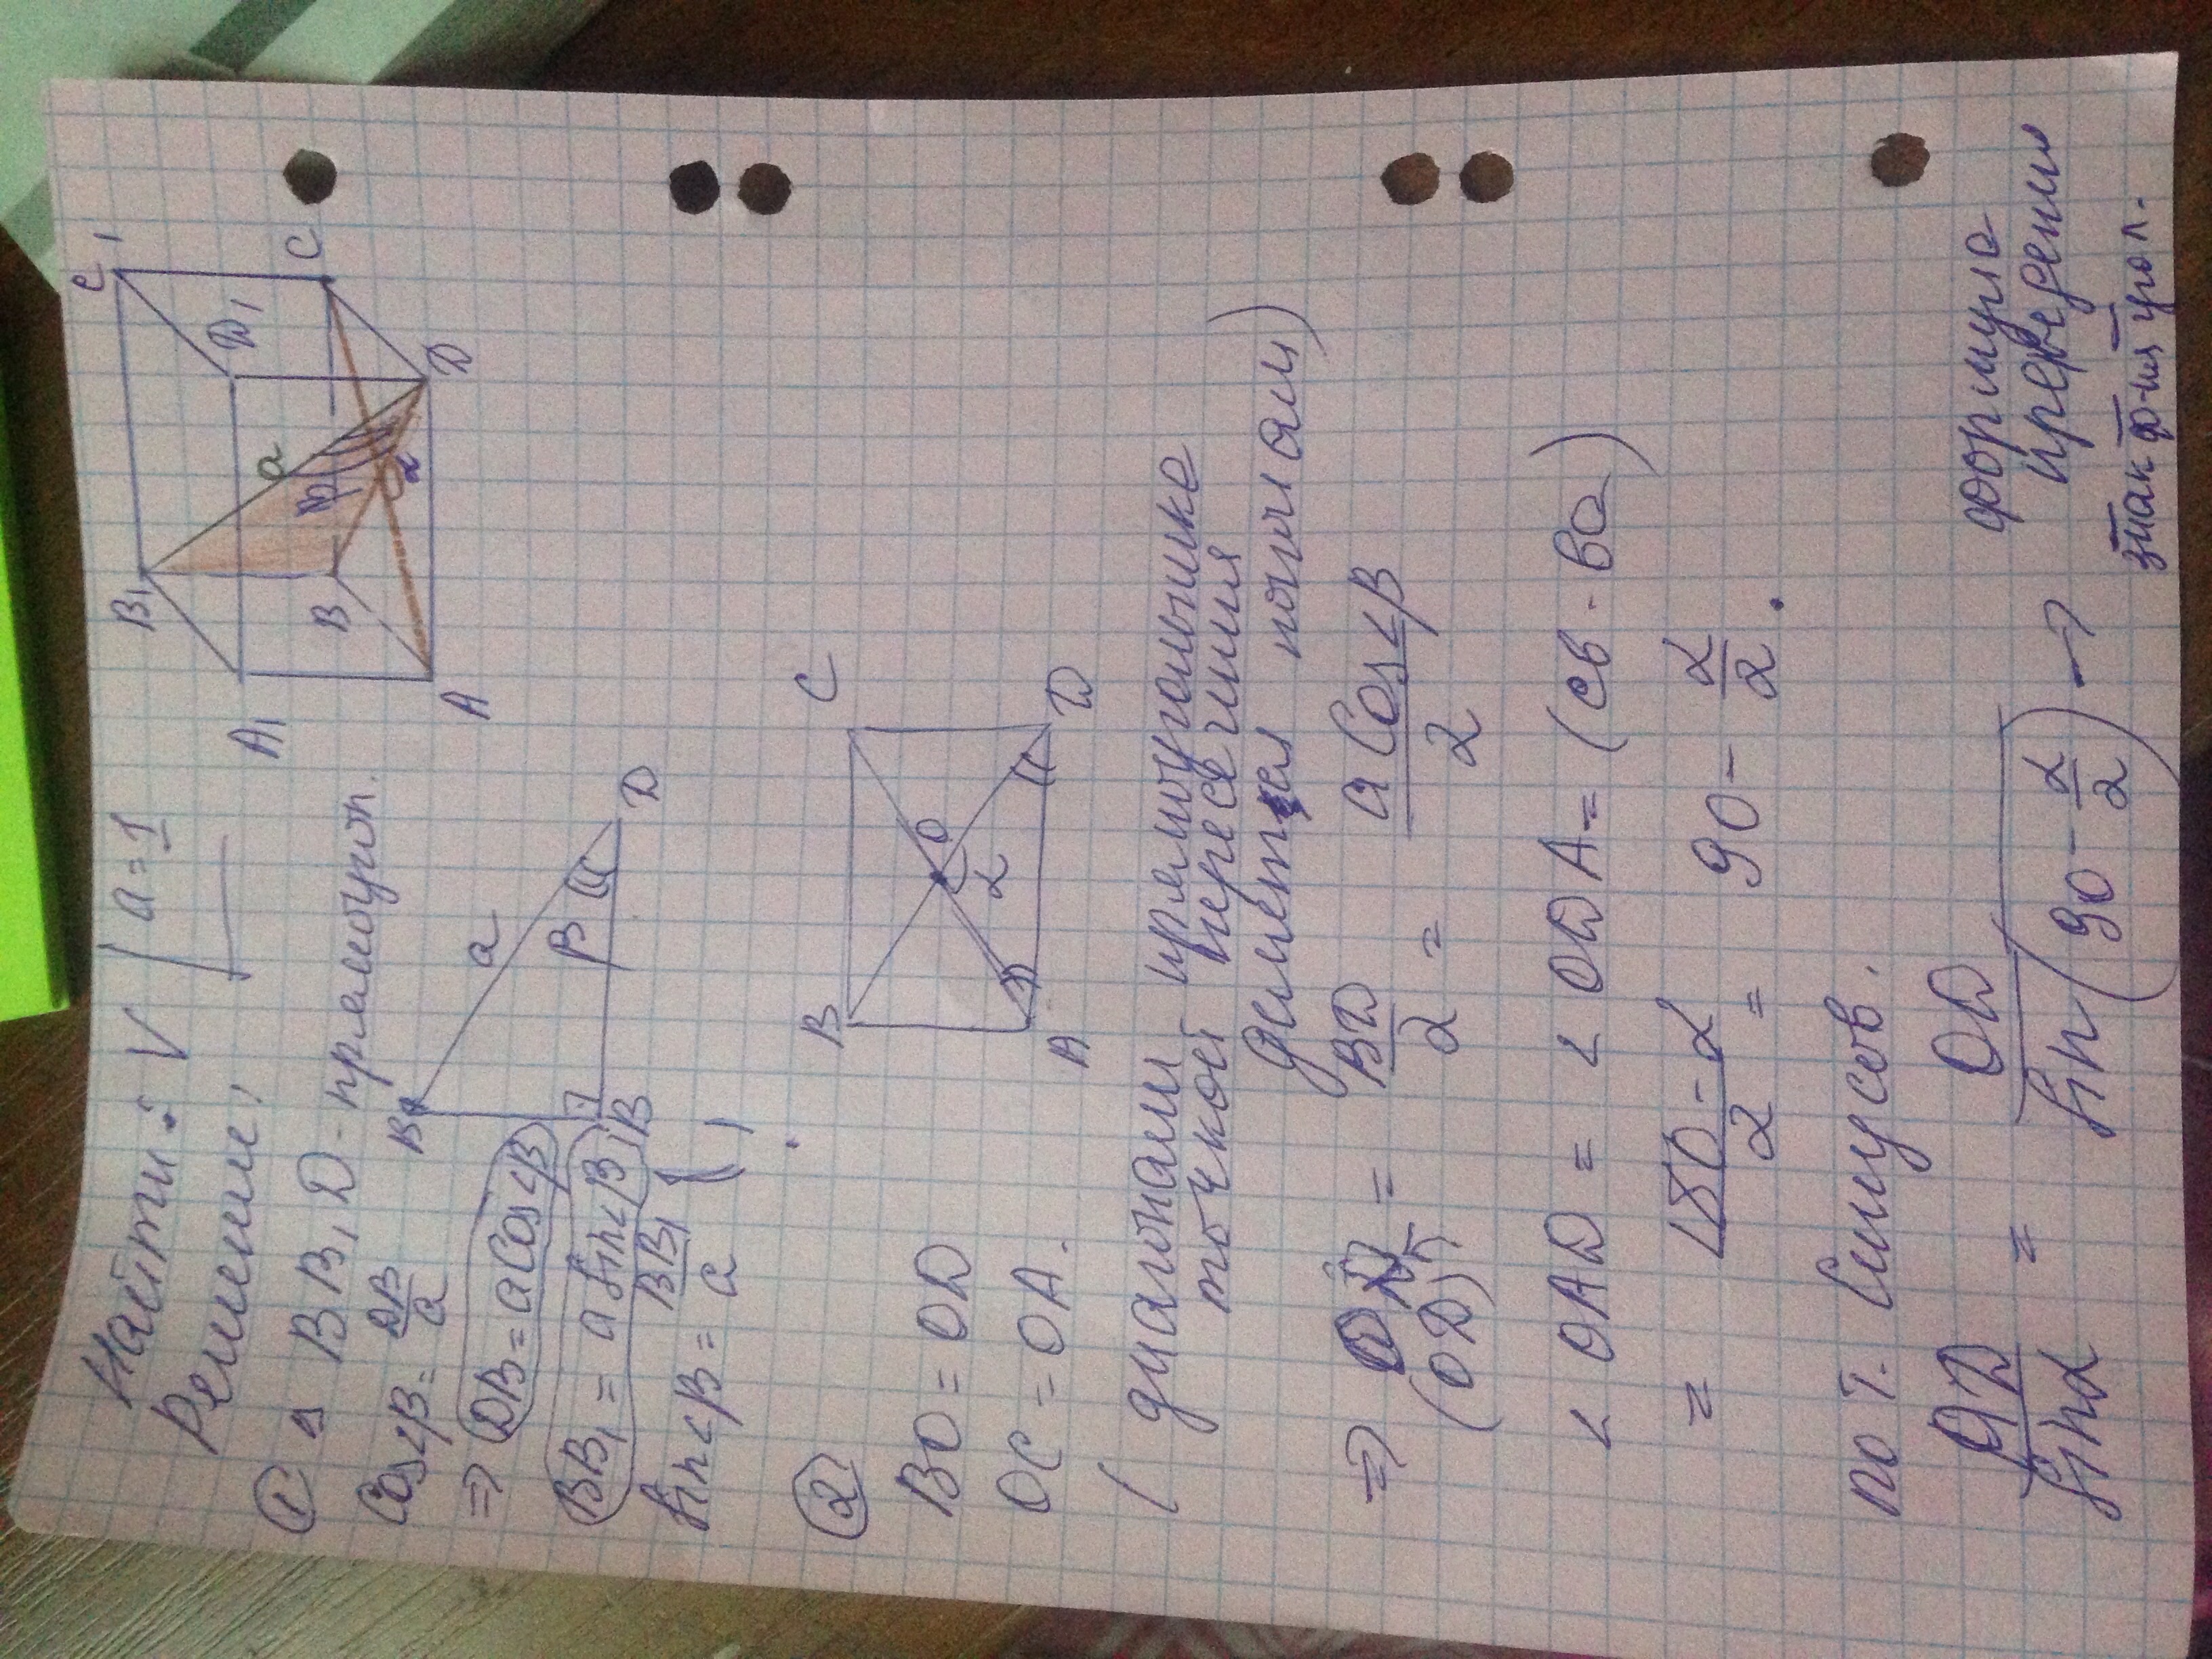 Найти: V a = 1
Решение:
B₁ C₁ D₁ A₁ B C A D a β O α
① △ BB₁D - прямоугол.
Cos∠β = DB/a
⇒ DB = a Cos∠β
BB₁ = a sin∠β
sin∠β = BB₁/a
B₁ a β D B
②
BO = OD
OC = OA.
B C O α A D
( диагонали прямоугольника
точкой пересечения
делятся пополам)
⇒ (OD) = BD/2 = a Cos∠β/2
∠ OAD = ∠ ODA = (св-во)
= 180-α/2 = 90 - α/2.
по т. Синусов.
AD/sinα = OD/sin(90 - α/2) →
формула
приведения
знак ф-ии угол.